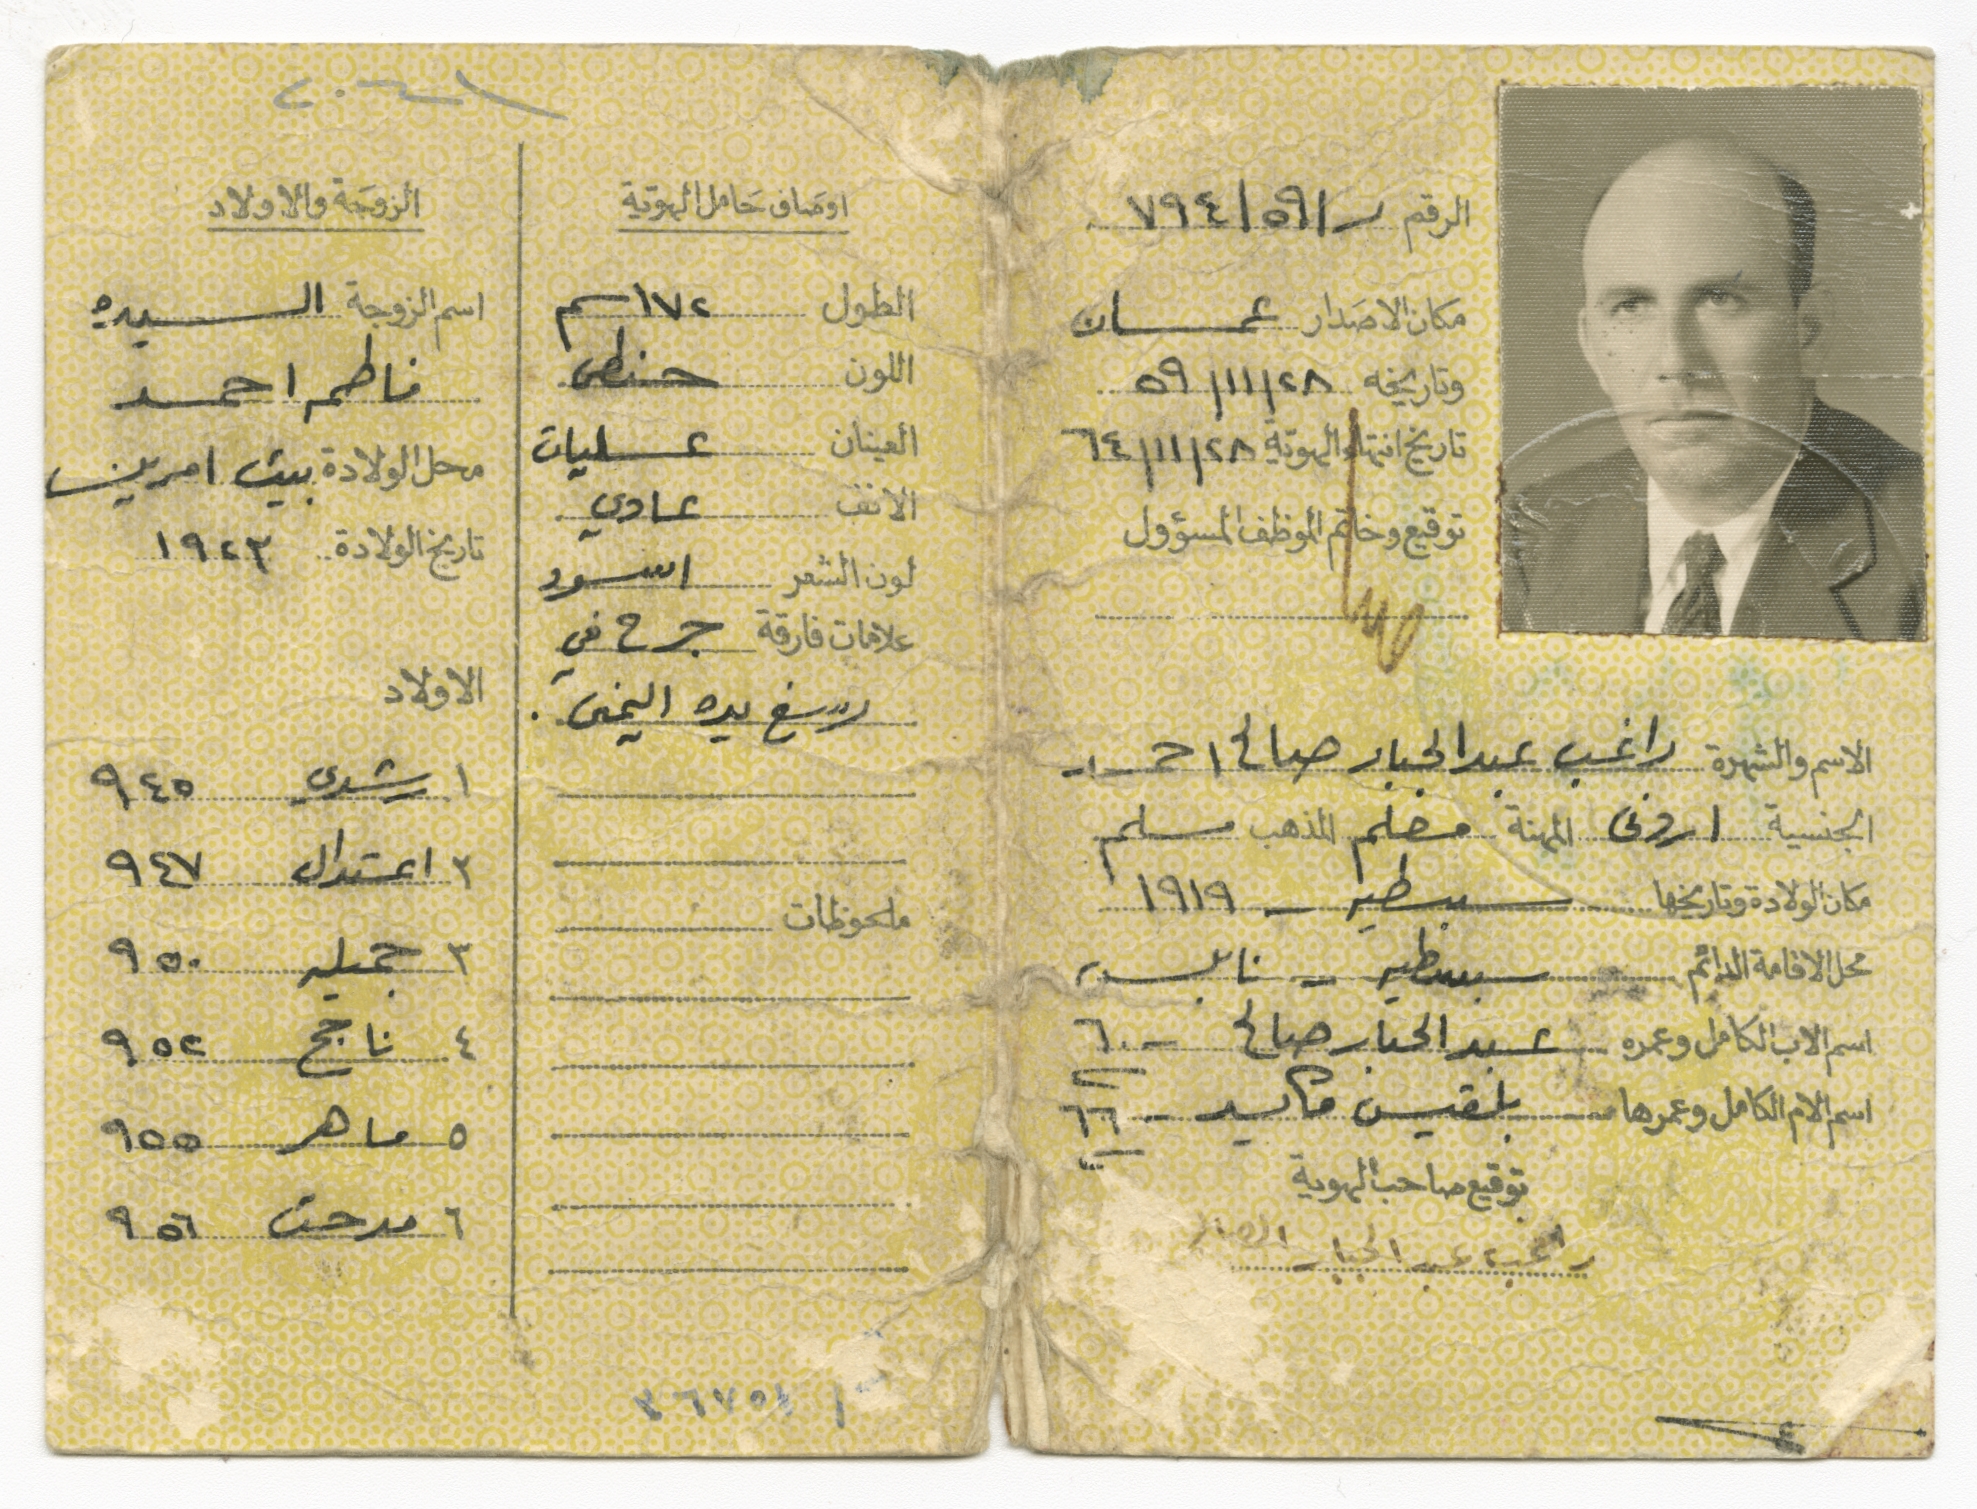 الرقم ر/٥٩/٧٩٤
مكان الاصدار عمان
وتاريخه ٢٨/١١/٥٩
تاريخ انتهاء الهوية ٢٨/١١/٦٤
توقيع وخاتم الموظف المسؤول
الاسم والشهرة راغب عبد الجبار صالح احمد
الجنسية اردني المهنة معلم المذهب مسلم
مكان الولادة وتاريخها سبسطيه - ١٩١٩
محل الاقامة الدائم سبسطيه - نابلس
اسم الاب الكامل وعمره عبد الجبار صالح - ٦٠
اسم الام الكامل وعمرها بلقيس - ٦٦
توقيع صاحب الهوية
راغب عبد الجبار
اوصاف حامل الهوية
الطول ١٧٢ سم
اللون حنطي
العينان عسليات
الانف عادي
لون الشعر اسود
علامات فارقة جرح في
رسغ يده اليمنى .
ملحوظات
الزوجة والاولاد
اسم الزوجة السيده
فاطم احمد
محل الولادة بيت امرين
تاريخ الولادة ١٩٢٣
الاولاد
١ رشدي ٩٤٥
٢ اعتدال ٩٤٧
٣ جميله ٩٥٠
٤ ناجح ٩٥٢
٥ ماهر ٩٥٥
٦ مدحت ٩٥٦